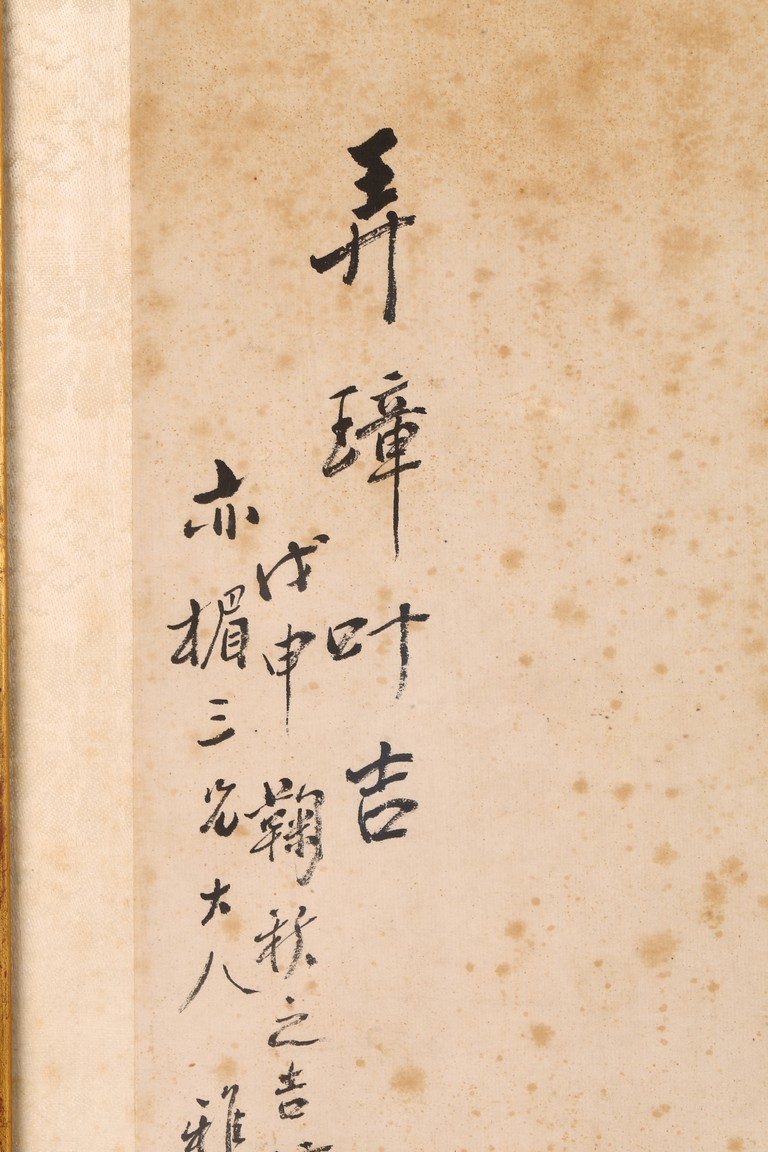 弄璋叶吉
戊申鞠秋之吉
亦楣三兄大人雅